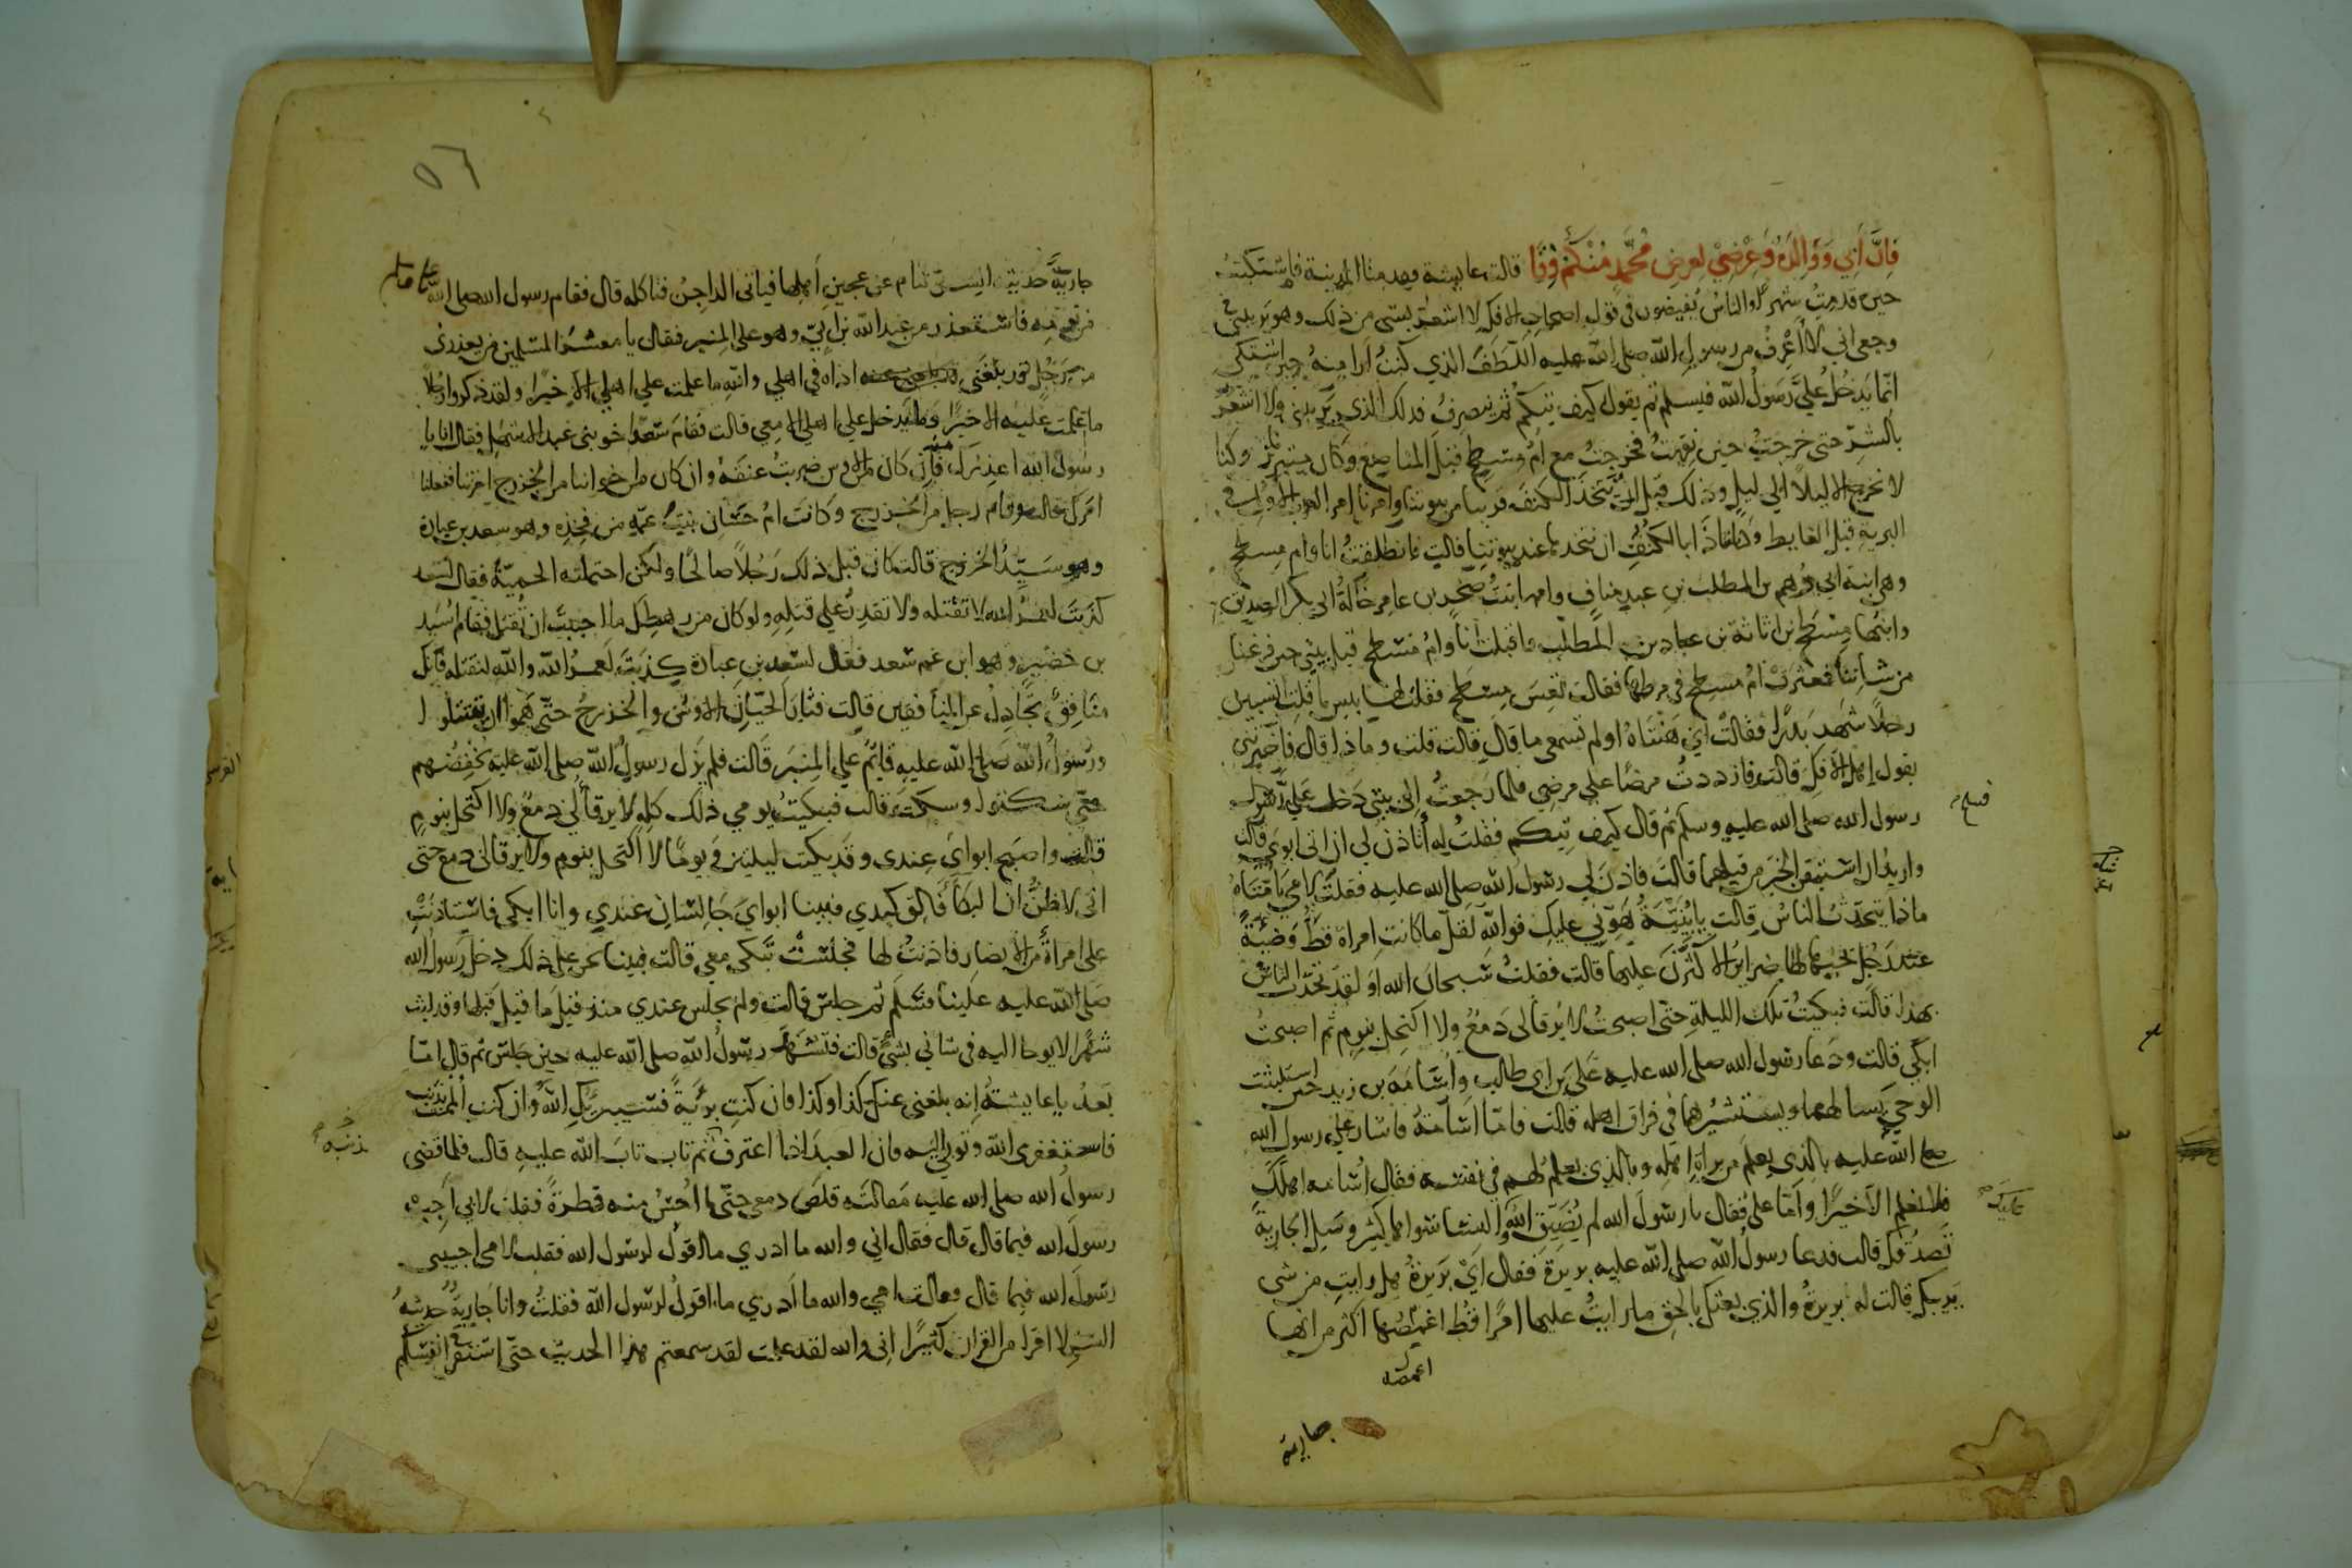 فَاِنَّ اَبِي وَوَالِدَهُ وَعِرْضِيْ لِعِرضِ مُحَمَّدٍ مِنْكُمْ وِقَا قالت عايشة فقدمنا المدينة فاشتكيتُ
حين قدمتُ شهرًا والناسُ يُفيضون في قول اصحاب الافك لا اشعر بشي من ذلك وهو يريبني في
وجعي اني لا اَعْرِفُ من رسول الله صلى الله عليه اللَّطَفَ الذي كنتُ ارا منهُ حين اشتكي
انما يَدخُلُ عليَّ رسولُ الله فيسلم ثم يقول كيف تيكم ثم ينصرفُ فذلك الذي يَريبني ولا اشعُرُ
بالشرّ حتى خرجتُ حين نقِهتُ فخرجتُ مع امُّ مسطح قبَل المناصع وكان متبرزنا وكنا
لا نخرج الا ليلًا الي ليلٍ وذلك قبل ان نتخذ الكنف قريبا من بيوتنا وامرنا امر العرب الاول في
البرية قبل الغايط وكنا نتاذا بالكُنُفِ ان نتخدها عند بيوتنا قالت فانطلقتُ انا وام مسطح
وهي ابنة ابي رُهم بن المطلب بن عبد مناف وامها بنتُ صخر بن عامر خالةُ ابي بكر الصديق
وابنُها مِسْطَح بن اثاثة بن عباد بن المطّلب فاقبلت انا وامُ مسطح قبل بيتي حين فرغنا
من شاننا فعثرَتْ امُ مسطح في مرطها فقالت تَعِسَ مِسْطَح فقلت لها بيس ما قلتِ اتسبين
رجلًا شهد بَدرًا فقالت اي هَنْتَاهُ اولم تسمعي ما قال قالت قلت وما ذا قال فاخبرتني
بقول اهل الافكِ قالت فازددتُ مرضًا على مرضي فلما رجعتُ الى بيتي دَخل عَليَّ
رسول الله صلى الله عليه وسلم ثم قال كيف تيكم فقلتُ له أتاذن لي ان اتى ابوَي قالت
فسلم
واريدُ ان استيقن الخبَر من قبلهما قالت فاذنَ لي رسول الله صلى الله عليه فقلتُ لامي يا أمتاهُ
ماذا يتحدّثُ الناسُ قالت يا بُنيّةُ هَوّني عليكِ فوالله لقلّ ما كانت امراة قطُّ وَضِيئَةً
عند رَجُلٍ يُحبها لها ضرايرُ الا كثّرنَ عليها قالت فقلتُ سُبحان الله اوَ لقد تحدّث الناسُ
بهذا قالت فبكيتُ تلك الليلةِ حتّى اصبحتُ لا يَرقأ لي دَمعُ ولا اكتحِل بنومٍ ثم اصبحتُ
ابكي قالت ودَعا رسُول الله صلى الله عليه علَيّ بن ابى طالبٍ واُسَامَة بن زيد حين استلبثت
الوحي يَسالهما ويستشيرُهما في فراق اهله قالت فامّا اسامةُ فاشار على رسول الله
صلى الله عليه بالذي يعلَم من براة اهلهِ وبالذي يعلم لهم في نفسه فقال اُسامة اهلك
ولا نعلم الا خيرًا وامّا علي فقال يا رسُول الله لم يُضَيّق اللهُ والنسا سواها كثير وسَلِ الجاريةً
تَصدُقكَ قالت فدعا رسولُ الله صلى الله عليه بريرة فقال اَيْ بَريرةُ هل رايتِ من شي
يَريبكِ قالت له بريرةُ والذي بعثكَ بالحق ما رايتُ عليها امرًا قطُ اغمصُها اكثر من انها
اغمصه
جارية
٥٦
جاريةٌ حديثة السنّ تنام عن عجين اَهلها فياتى الداجِنُ فتاكله قال فقام رسول الله صلى الله عليه
من يومِه فاستعذر من عبد الله بن اُبيّ وهو على المنبر فقال يا معشرَ المسلمين من يعذرنى
من رَجُل قد بلغَني اذاه في اهلي والله ما علمت علي اهلي الا خيرًا ولقد ذكروا رجلًا
ما علمت عليه الا خيرًا وما يدخل علي اهلي الا معي قالت فقام سعد اخو بني عبد الاشهل فقال انا يا
رسُول الله اعذِرك منه فان كان من الاوس ضربتُ عنقَهُ وان كان من اخواننا من الخزرج امرتنا ففعلنا
امرك قالت وقام رجل من الخزرج وكانت امُ حسّان بنتَ عمّه من فخِذه وهو سعد بن عبادة
وهو سَيّدُ الخزرج قالت كان قبل ذلك رَجُلًا صالحًا ولكن احتملته الحميّةُ فقال لسعد
كذبتَ لعمرُ الله لا تقتله ولا تقدرُ علي قتلِهِ ولو كان من رهطِكَ ما احببت ان يُقتل فقام اُسَيد
بن حضير وهو ابن عم سعد فقال لسَعد بن عبادة كذبتَ لعمرُ الله والله لنقتله فانك
منافقٌ تجادلُ عن المنافقين قالت فثارَ الحَيّانِ الاوسُ والخزرجُ حتّى هَمّوا ان يقتتلوا
ورسُولُ الله صلى الله عليه قايمٌ علي المنبَر قالت فلم يزَل رسولُ الله صلى الله عليه يخفضهم
حتى سكتوا وسكت قالت فبكيتُ يومي ذلك كله لا يرقأ لي دمعُ ولا اكتحل بنومٍ
قالت واصبح ابوايَ عِندى وقد بكت ليلتين وَيومًا لا اكتحل بنوم ولا يرقا لي دمع حتى
انى لاظنُّ ان البكأَ فالِق كبدي فبينا ابوايَ جَالسَانِ عندي وانا ابكي فاستاذنَتْ
على امراةٌ من الانصار فاذنتُ لها فجلسَتْ تَبكي معي قالت فبينا نحن على ذلك دخل رسول الله
صَلى الله عليه علَينا فسَلم ثم جلس قالت ولم يجلس عندي منذ قيلَ ما قيل قبلها وقد لبث
شهرًا لا يوحا اليه فى شاني بشئٍ قالت فتشهّد رسُولُ الله صلى الله عليه حين جَلس ثم قال امّا
بَعدُ يا عايشةُ اِنه بلغني عنكِ كذا وكذا فان كنتِ برئيةً فسَيبرّيكِ اللهُ وان كنت الممتِ بذنبٍ
فاستغفرى الله وتوبي اليه فان العبدَ اذا اعترف ثم تاب تابَ الله عليهِ قال فلما قضى
بذنبه
رسولُ الله صلى الله عليه مَقالتَه قلصَ دمعي حتّى ما اُحسُ منه قطرةً فقلت لابي اَجِبْ
رسولَ الله فيما قال قال فقال اني والله ما ادري ما اقولُ لرسُول الله فقلت لامى اجيبي
رسُولَ الله فيما قال وقالت امي والله ما اَدري ما اقولُ لرسُول الله فقلتُ وانا جَاريةٌ حديثةُ
السنّ لا اقرا من القران كثيرًا اِنى والله لقد علمت لقد سمعتم هذا الحديث حتّى استقرّ في انفسكم